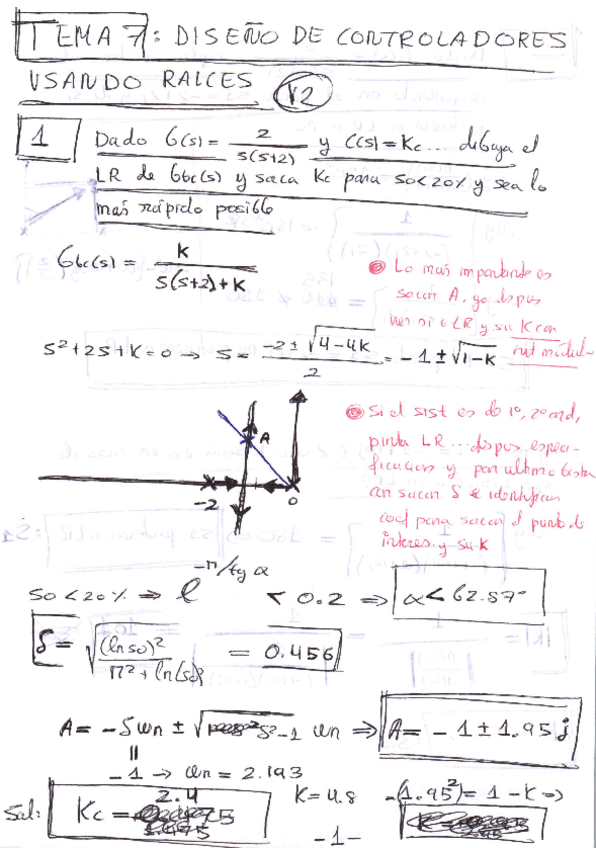 TEMA 7: DISEÑO DE CONTROLADORES
USANDO RAICES V2
1 Dado G(s) = 2/s(s+2) y C(s) = Kc... dibuja el
LR de Gbc(s) y saca Kc para SO<20% y sea lo
más rápido posible
Gbc(s) = K/s(s+2)+K
Lo mas importante es
sacar A, ya
LR y su K con
s²+2s+K=0 → s = -2±√4-4K/2 = -1±√1-K
A
-2
0
Si el sist es de 1º, 2º ord,
pinta LR... despues especi-
ficaciones y por ultimo basta
con sacar S e identificar
coef para sacar el punto de
interes y su K
SO<20% ⇒ e^-π/tg α < 0.2 ⇒ α<62.87°
δ = √(ln so)²/π²+ln(so)² = 0.456
A = -δωn ± √δ²-1 ωn ⇒ A = -1 ± 1.95j
-1 → ωn = 2.193
Sol: Kc = 2.4 K = 4.8 -(1.95²) = 1-K ⇒
-1-